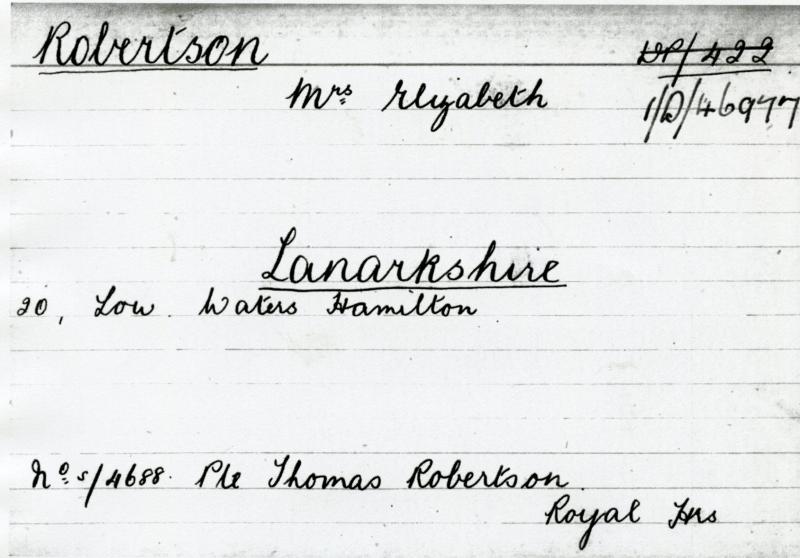 Robertson
DP/422
Mrs Elizabeth
1/D/46977
Lanarkshire
20, Low Waters Hamilton
No. s/4688. Pte Thomas Robertson.
Royal Hrs